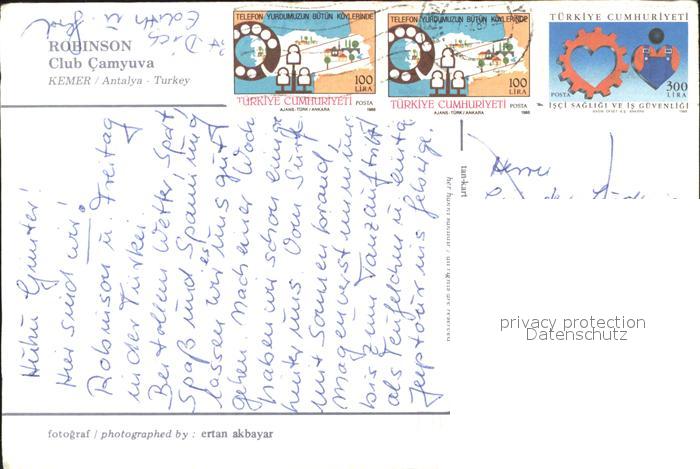 ROBINSON
Club Çamyuva
KEMER / Antalya - Turkey
TELEFON YURDUMUZUN BÜTÜN KÖYLERİNDE
100
LİRA
TÜRKİYE CUMHURİYETİ POSTA
AJANS-TÜRK/ANKARA 1988
TELEFON YURDUMUZUN BÜTÜN KÖYLERİNDE
100
LİRA
TÜRKİYE CUMHURİYETİ POSTA
AJANS-TÜRK/ANKARA 1988
TÜRKİYE CUMHURİYETİ
POSTA
300
LİRA
İŞÇİ SAĞLIĞI VE İŞ GÜVENLİĞİ
Huhu Günter!
Hier sind wir!
Robinson u. Freitag
in der Türkei.
Bei tollem Wetter, Spat,
Spaß und Spannung
lassen wir es uns gut
gehen. Nach einer Woche
haben wir schon einige
hinter uns. Vom Surf
mit Sonnenbrand,
Magenverstimmung
bis zum Tanzauftritt
als Teufelchen u. einta
Jeeptour ins Gebirge.
Edith u.
tan-kart
Herrn
privacy protection
Datenschutz
fotoğraf / photographed by : ertan akbayar